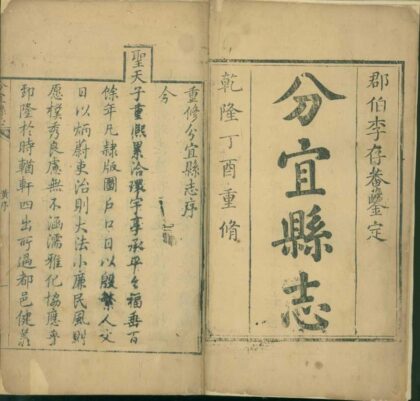 郡伯李存菴鑒定
分宜縣志
乾隆丁酉重脩
重修分宜縣志序
今
聖天子重熙累洽環宇享承平之福垂百
餘年凡隸版圖戶口日以殷繁人文
日以炳蔚吏治則大法小廉民風則
愿樸秀良處無不涵濡雅化協應乎
郅隆於時輶軒四出所過都邑健